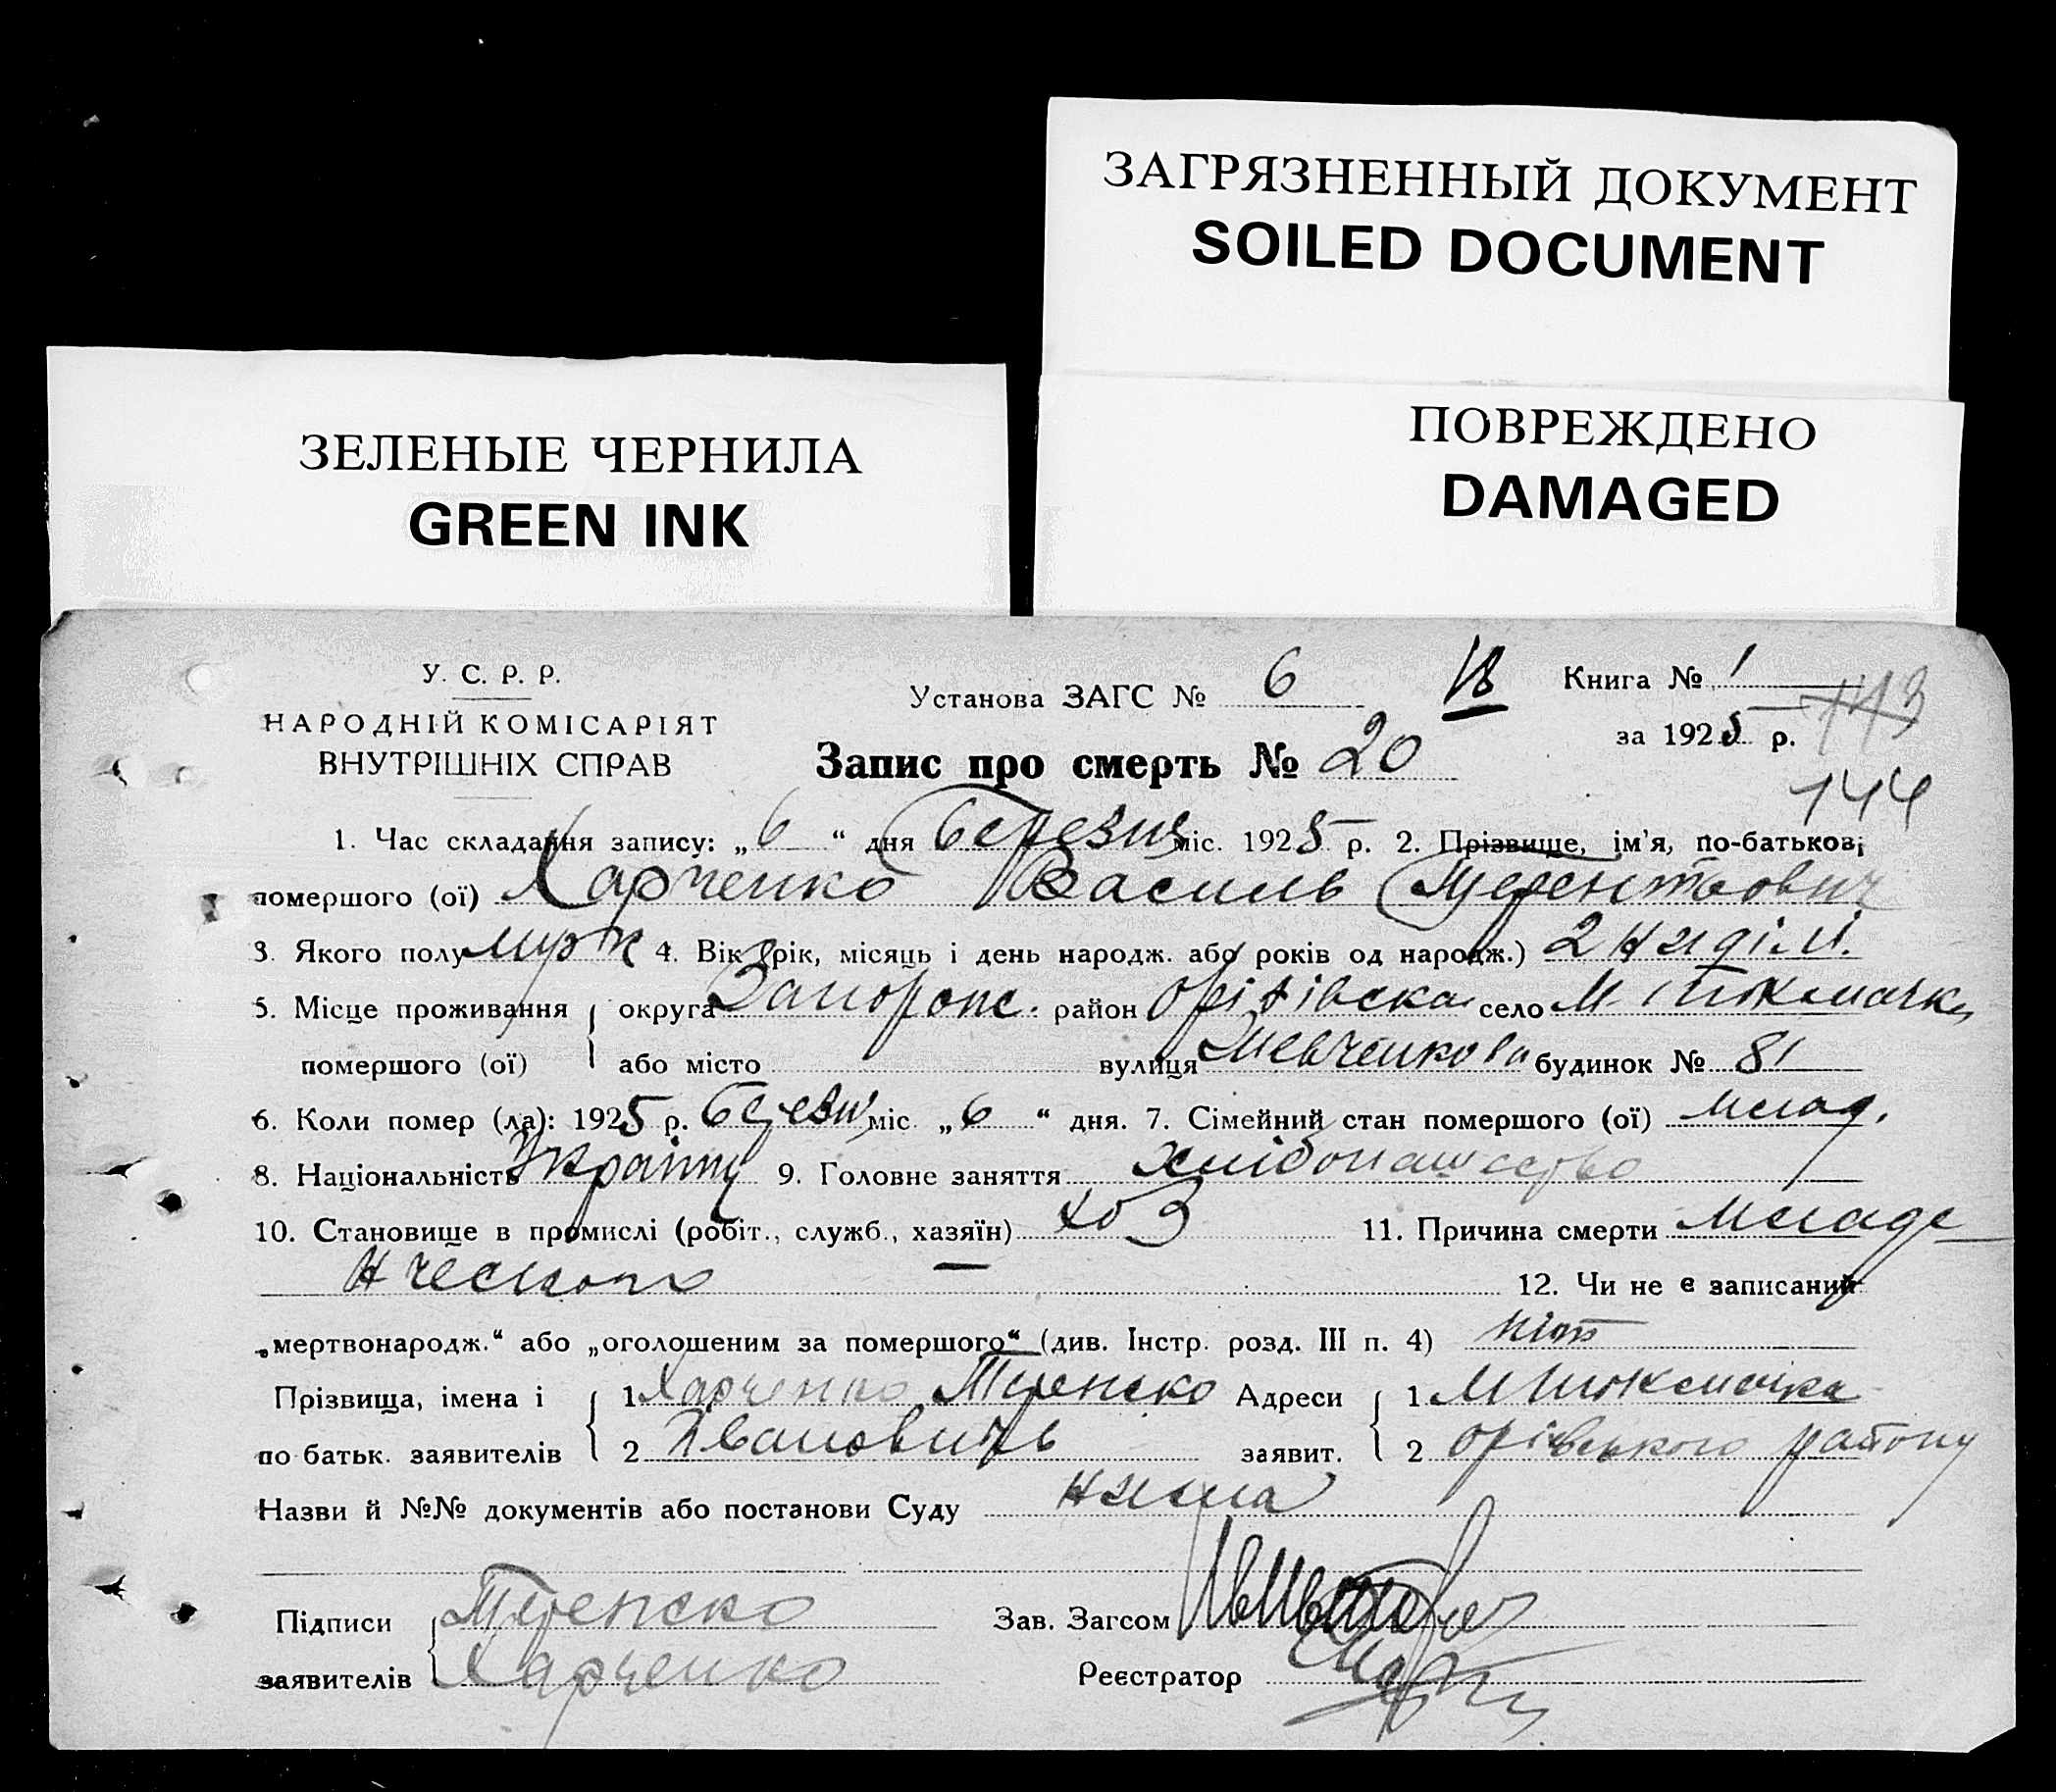 ЗАГРЯЗНЕННЫЙ ДОКУМЕНТ
SOILED DOCUMENT
ПОВРЕЖДЕНО
DAMAGED
ЗЕЛЕНЫЕ ЧЕРНИЛА
GREEN INK
У. С. Р. Р.
НАРОДНІЙ КОМІСАРІЯТ
ВНУТРІШНІХ СПРАВ
Установа ЗАГС № 6
18
Книга № 1
за 1925 р.
113
144
Запис про смерть № 20
1. Час складання запису: „6“ дня березня міс. 1925 р. 2. Прізвище, ім'я, по-батькові
помершого (ої) Харченко Василь Терентьович
3. Якого полу муж 4. Вік (рік, місяць і день народж. або років од народж.) 2 ниділі.
5. Місце проживання округа Запорож. район Оріхівска село М. Токмачка
помершого (ої) або місто вулиця Шевченкова будинок № 81
6. Коли помер (ла): 1925 р. березн міс. „6“ дня. 7. Сімейний стан помершого (ої) млад.
8. Національність Украінц 9. Головне заняття хлібопашество
10. Становище в промислі (робіт., служб., хазяїн) хоз 11. Причина смерти младе-
нческого — 12. Чи не є записаний
„мертвонародж.“ або „оголошеним за помершого“ (див. Інстр. розд. III п. 4) ніт
Прізвища, імена і 1 Харченко Терешко Адреси 1 М Токмачка
по батьк. заявителів 2 Івановичь заявит. 2 Орівського району
Назви й №№ документів або постанови Суду нима
Підписи Терешко Зав. Загсом
заявителів Харченко Реєстратор